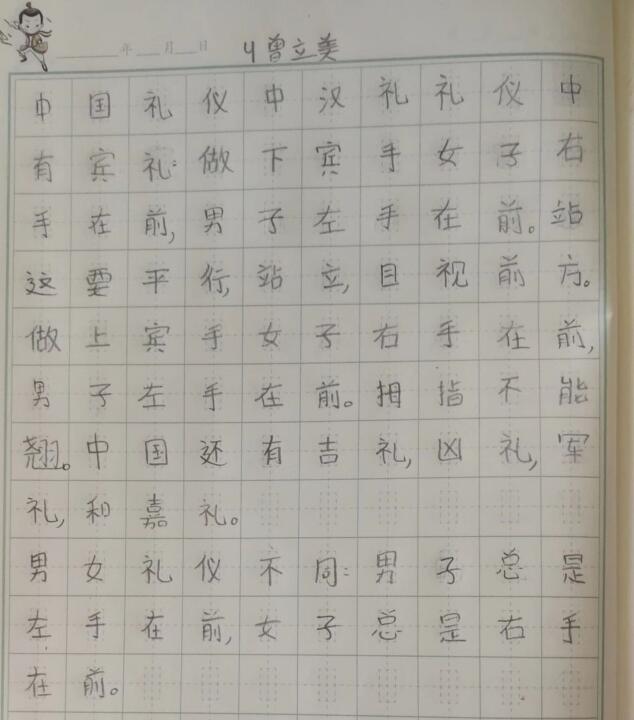 年 月 日 4 曾立美
中国礼仪中汉礼礼仪中
有宾礼:做下宾手女子右
手在前,男子左手在前。站
这要平行,站立,目视前方。
做上宾手女子右手在前,
男子左手在前。拇指不能
翘。中国还有吉礼,凶礼,军
礼,和嘉礼。
男女礼仪不同:男子总是
左手在前,女子总是右手
在前。